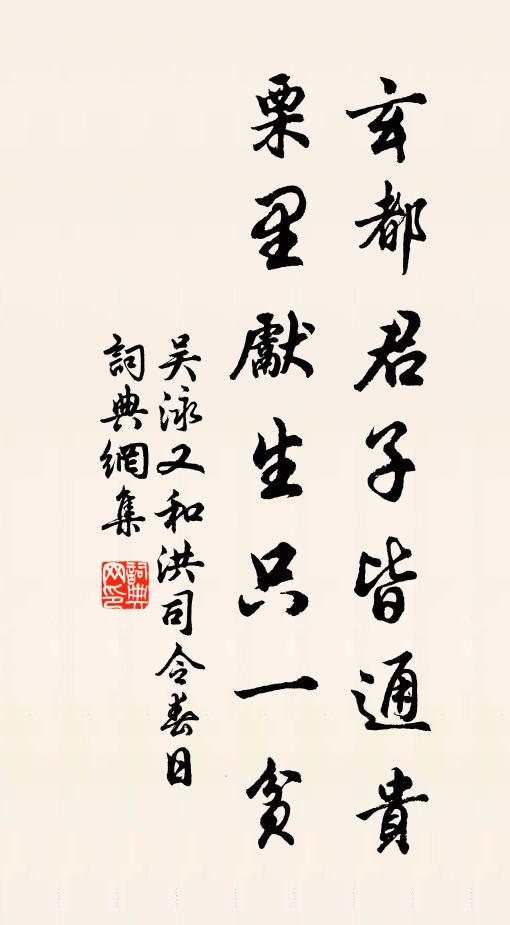 玄都君子皆通貴
栗里獻生只一貧
吴泳又和洪司令春日
詞典網集
詞典网印